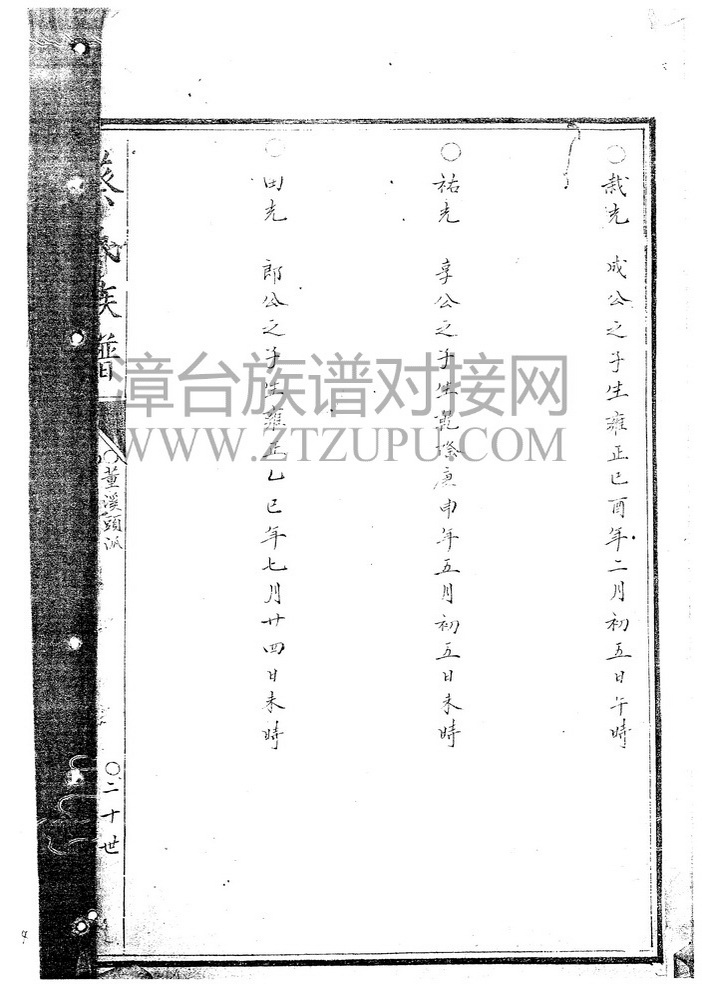 ○哉光 成公之子生雍正己酉年二月初五日午時
○祐光 享公之子生乾隆庚申年五月初五日未時
○田光 郎公之子生雍正乙巳年七月廿四日未時
蔡氏族譜
○董溪頭派
○二十世
漳台族谱对接网
WWW.ZTZUPU.COM